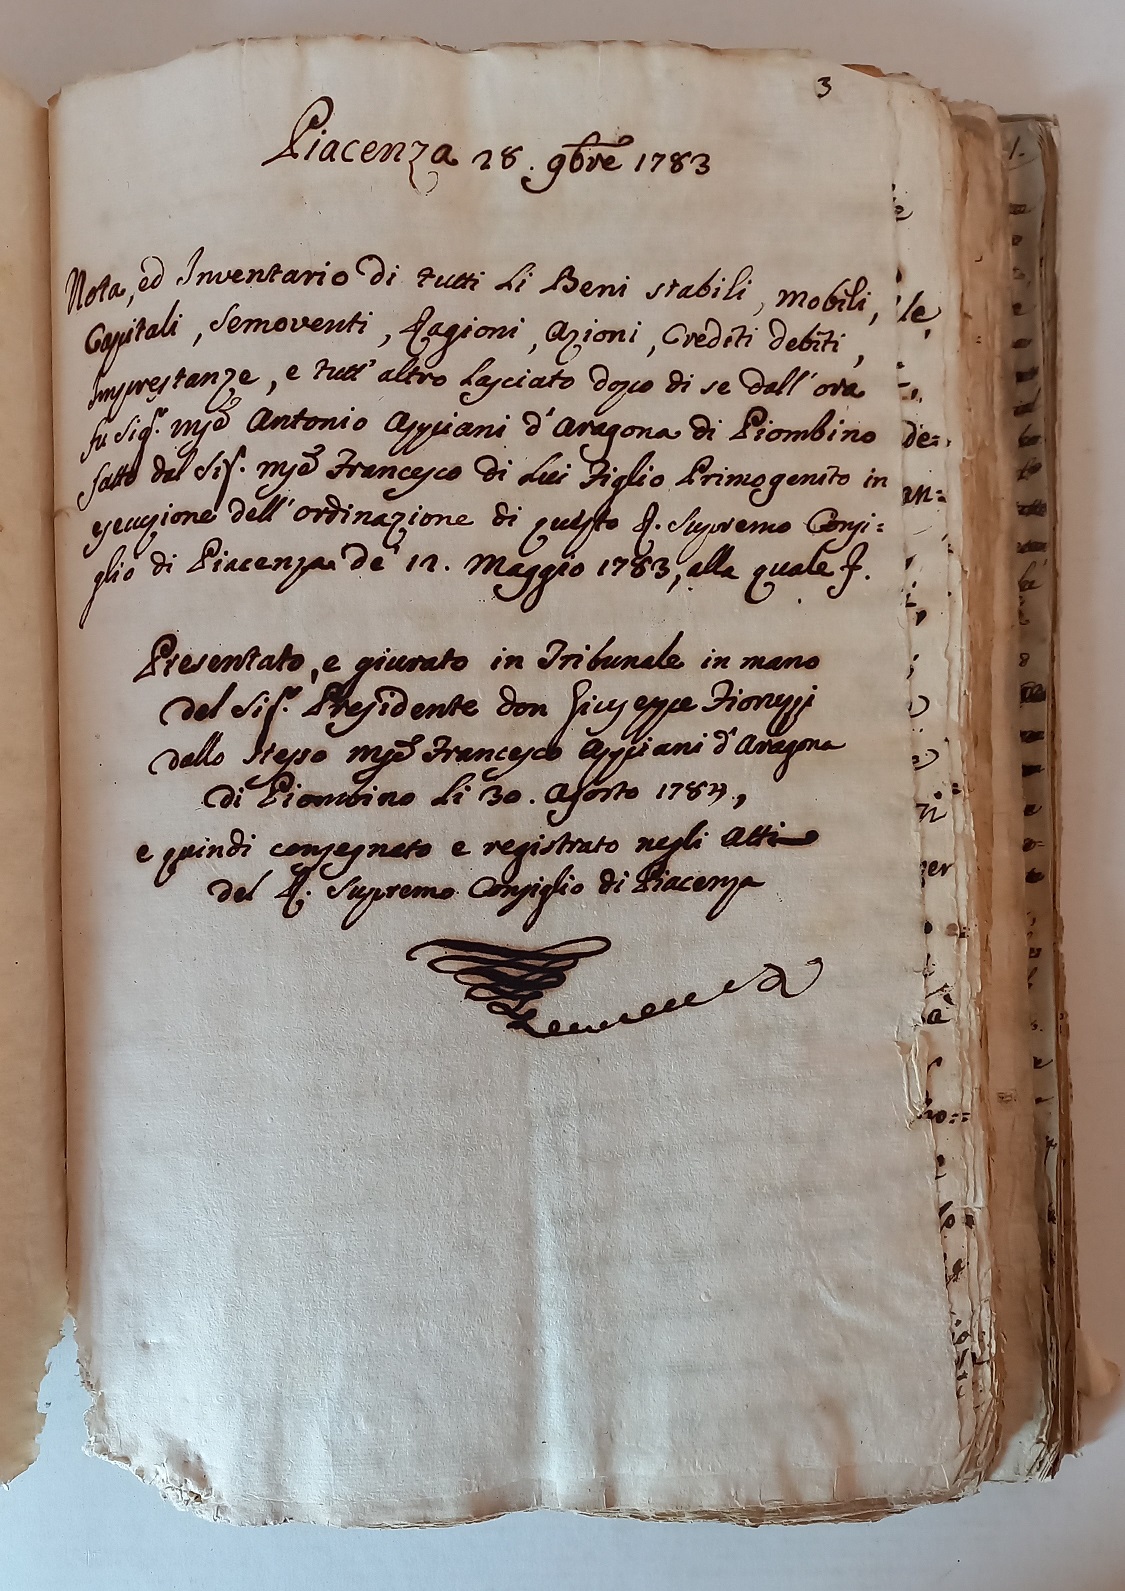 3
Piacenza 28. 9bre 1783
Nota, ed Inventario di tutti li Beni stabili, mobili,
Capitali, Semoventi, Ragioni, Azioni, Crediti debiti,
Imprestanze, e tutt' altro lasciato dopo di se dall' ora
fu Sigr. mse Antonio Appiani d'Aragona di Piombino
fatto dal Sigr. mse Francesco di Lui Figlio Primogenito in
esecuzione dell' ordinazione di questo R. Supremo Consi=
glio di Piacenza de' 12. Maggio 1783, alla quale &.
Presentato, e giurato in Tribunale in mano
del Sigr. Presidente don Giuseppe Fioruzzi
dallo stesso mse Francesco Appiani d'Aragona
di Piombino li 30. Agosto 1784,
e quindi consegnato e registrato negli Atti
del R. Supremo Consiglio di Piacenza